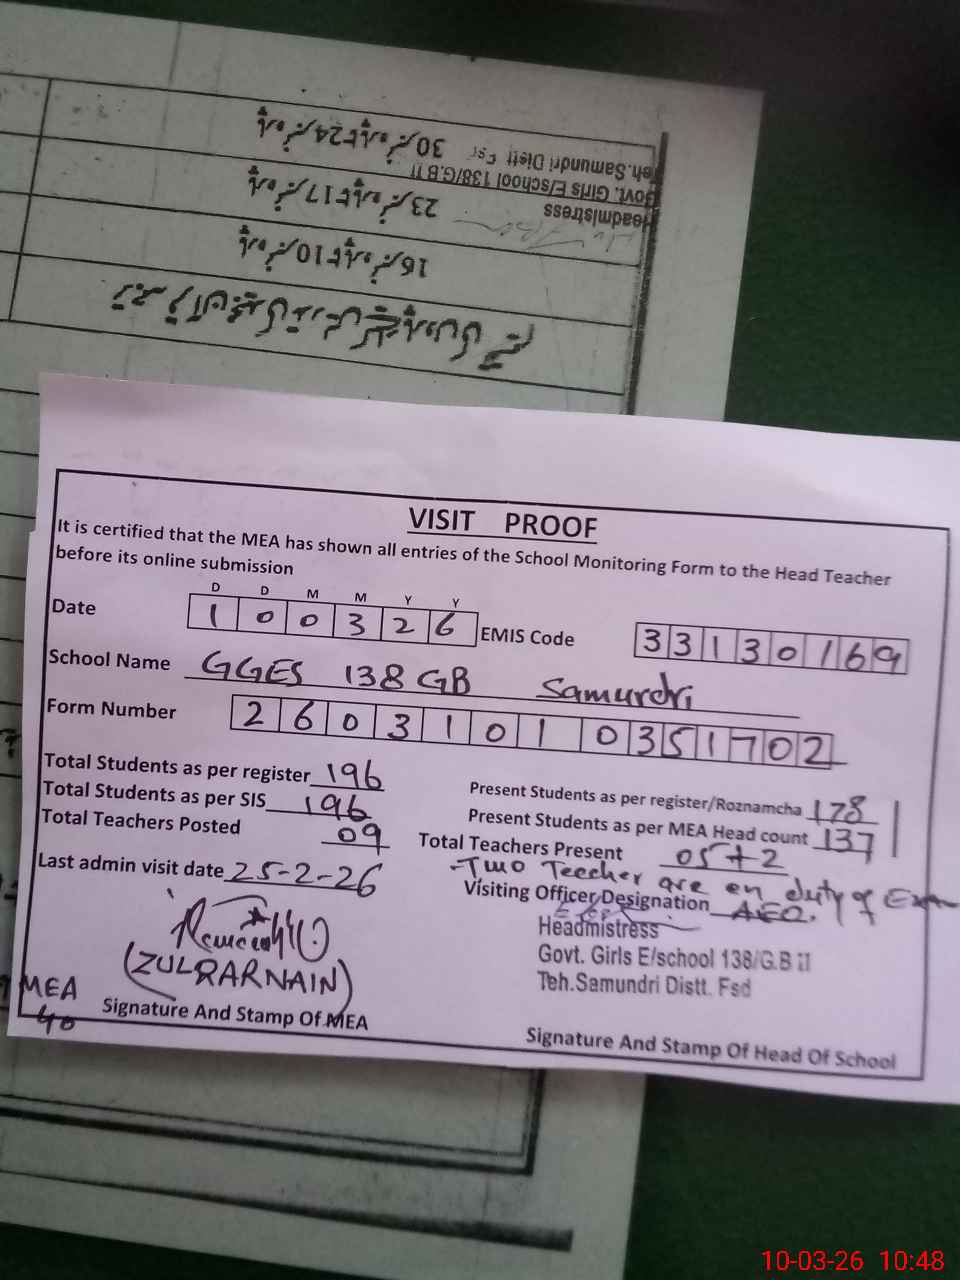 30 24
Teh.Samundri Distt Fsd
Govt. Girls E/school 138/G.B II
23 17
Headmistress
16 10
VISIT PROOF
It is certified that the MEA has shown all entries of the School Monitoring Form to the Head Teacher
before its online submission
D D M M Y Y
Date 1 0 0 3 2 6 EMIS Code 3 3 1 3 0 1 6 9
School Name GGES 138 GB Samundri
Form Number 2 6 0 3 1 0 1 0 3 5 1 7 0 2
Total Students as per register 196 Present Students as per register/Roznamcha 178
Total Students as per SIS 196 Present Students as per MEA Head count 137
Total Teachers Posted 09 Total Teachers Present 05+2
-Two Teecher are en duty of Exam
Last admin visit date 25-2-26 Visiting Officer Designation AEO.
Headmistress
Govt. Girls E/school 138/G.B II
Teh.Samundri Distt. Fsd
(ZULQARNAIN)
MEA
40
Signature And Stamp Of MEA
Signature And Stamp Of Head Of School
10-03-26 10:48